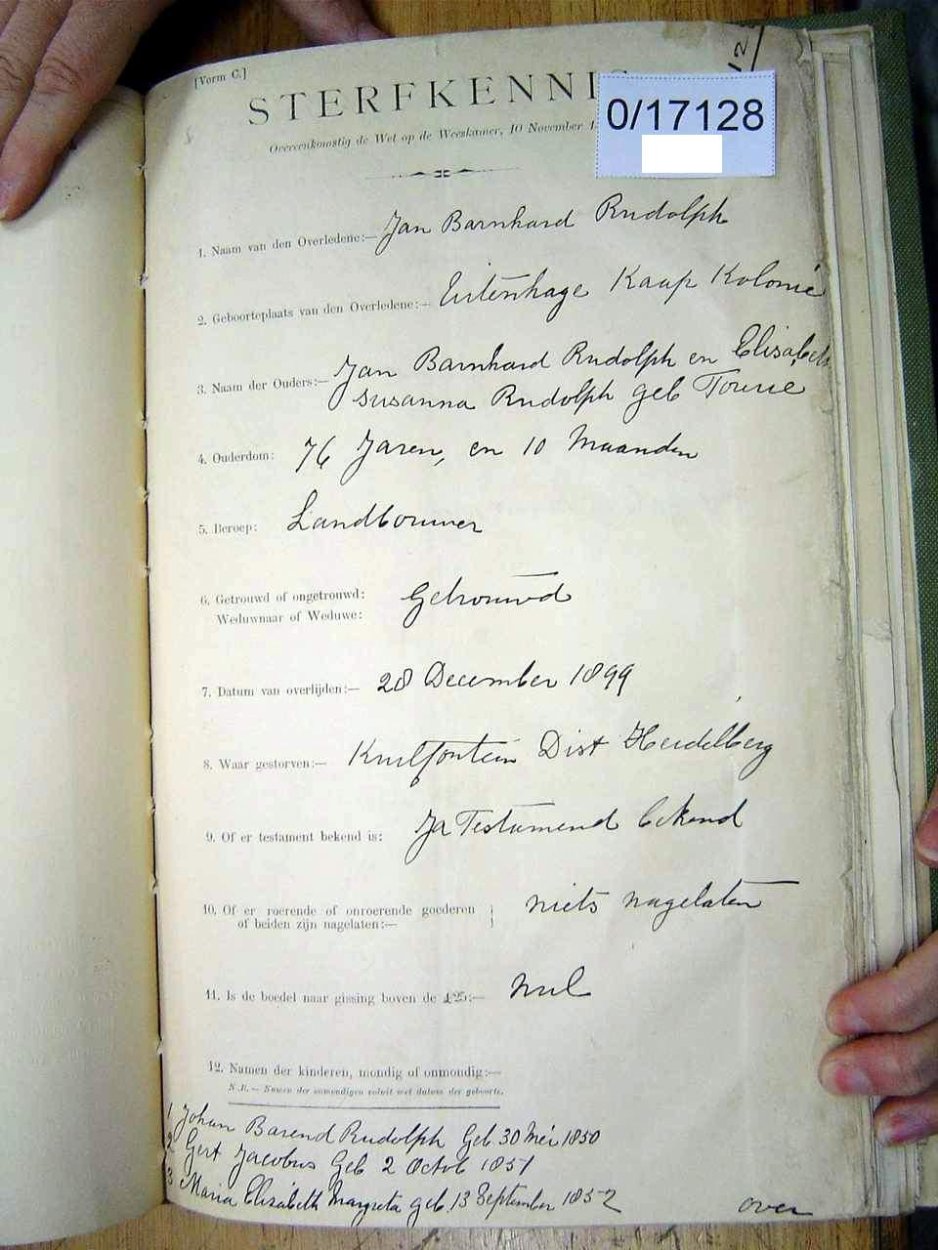 [Vorm C.]
12
STERFKENNIS
0/17128
Overeenkomstig de Wet op de Weeskamer, 10 November 1
1. Naam van den Overledene:— Jan Barnhard Rudolph
2. Geboorteplaats van den Overledene:— Uitenhage Kaap Kolonie
3. Naam der Ouders:— Jan Barnhard Rudolph en Elisabeth
Susanna Rudolph geb
4. Ouderdom: 76 Jaren, en 10 Maanden
5. Beroep: Landbouwer
6. Getrouwd of ongetrouwd: Getrouwd
Weduwnaar of Weduwe:
7. Datum van overlijden:— 28 December 1899
8. Waar gestorven:— Knilfontein Dist Heidelberg
9. Of er testament bekend is: Ja Testamend bekend
10. Of er roerende of onroerende goederen } niets nagelaten
of beiden zijn nagelaten:—
11. Is de boedel naar gissing boven de £25:— Nul
12. Namen der kinderen, mondig of onmondig:—
N.B.— Namen der onmondigen voluit met datum der geboorte.
1 Johan Barend Rudolph Geb 30 Mei 1850
2 Gert Jacobus Geb 2 Octob 1851
3 Maria Elisabeth Margreta geb 13 September 1852
over